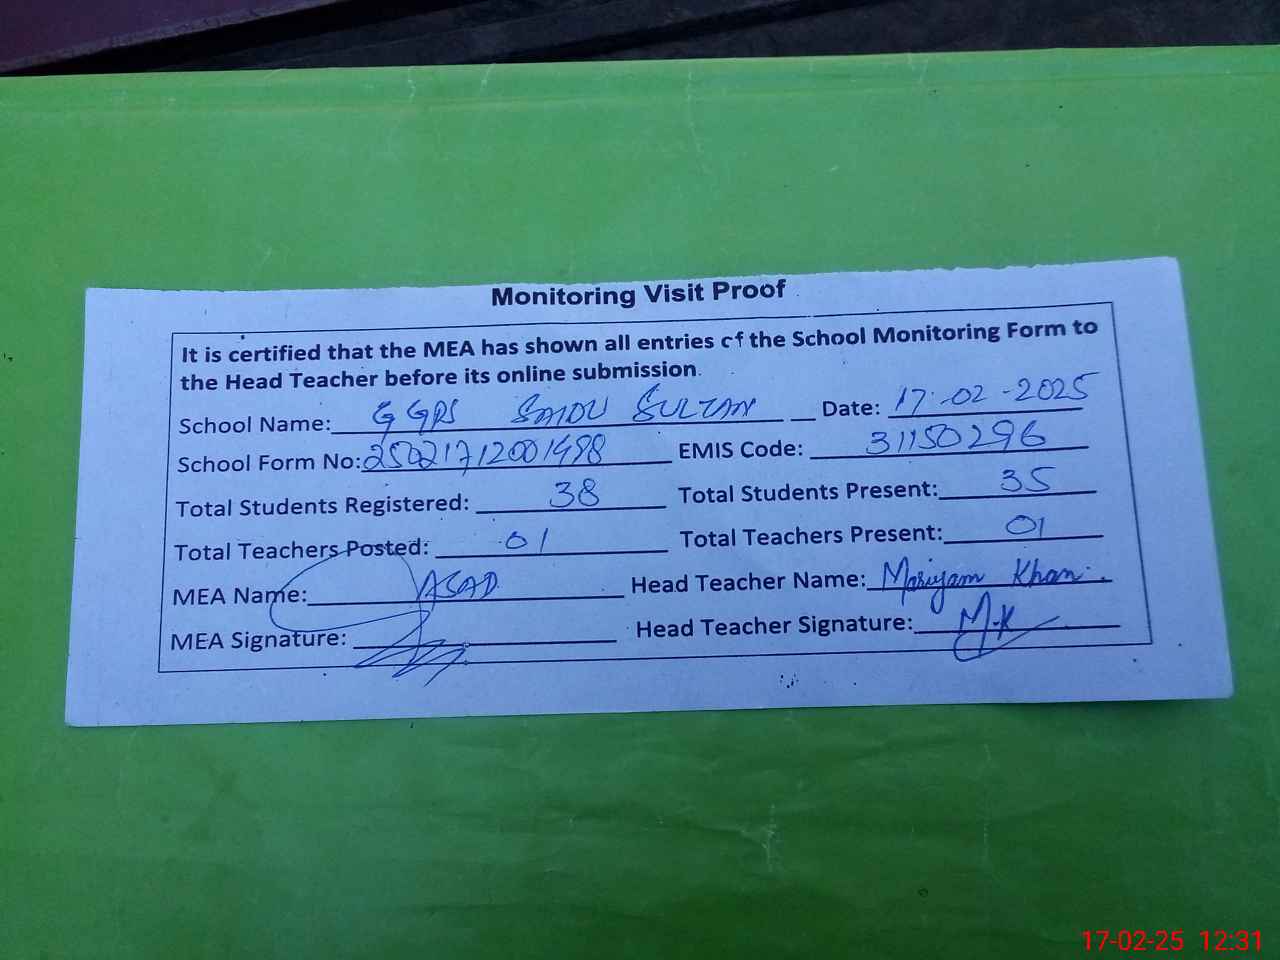 Monitoring Visit Proof
It is certified that the MEA has shown all entries of the School Monitoring Form to
the Head Teacher before its online submission.
School Name: GGPS SULTAN Date: 17-02-2025
School Form No: 25021712001498 EMIS Code: 31150296
Total Students Registered: 38 Total Students Present: 35
Total Teachers Posted: 01 Total Teachers Present: 01
MEA Name: ASAD Head Teacher Name: Mariyam Khan
MEA Signature: Head Teacher Signature: M.K
17-02-25 12:31